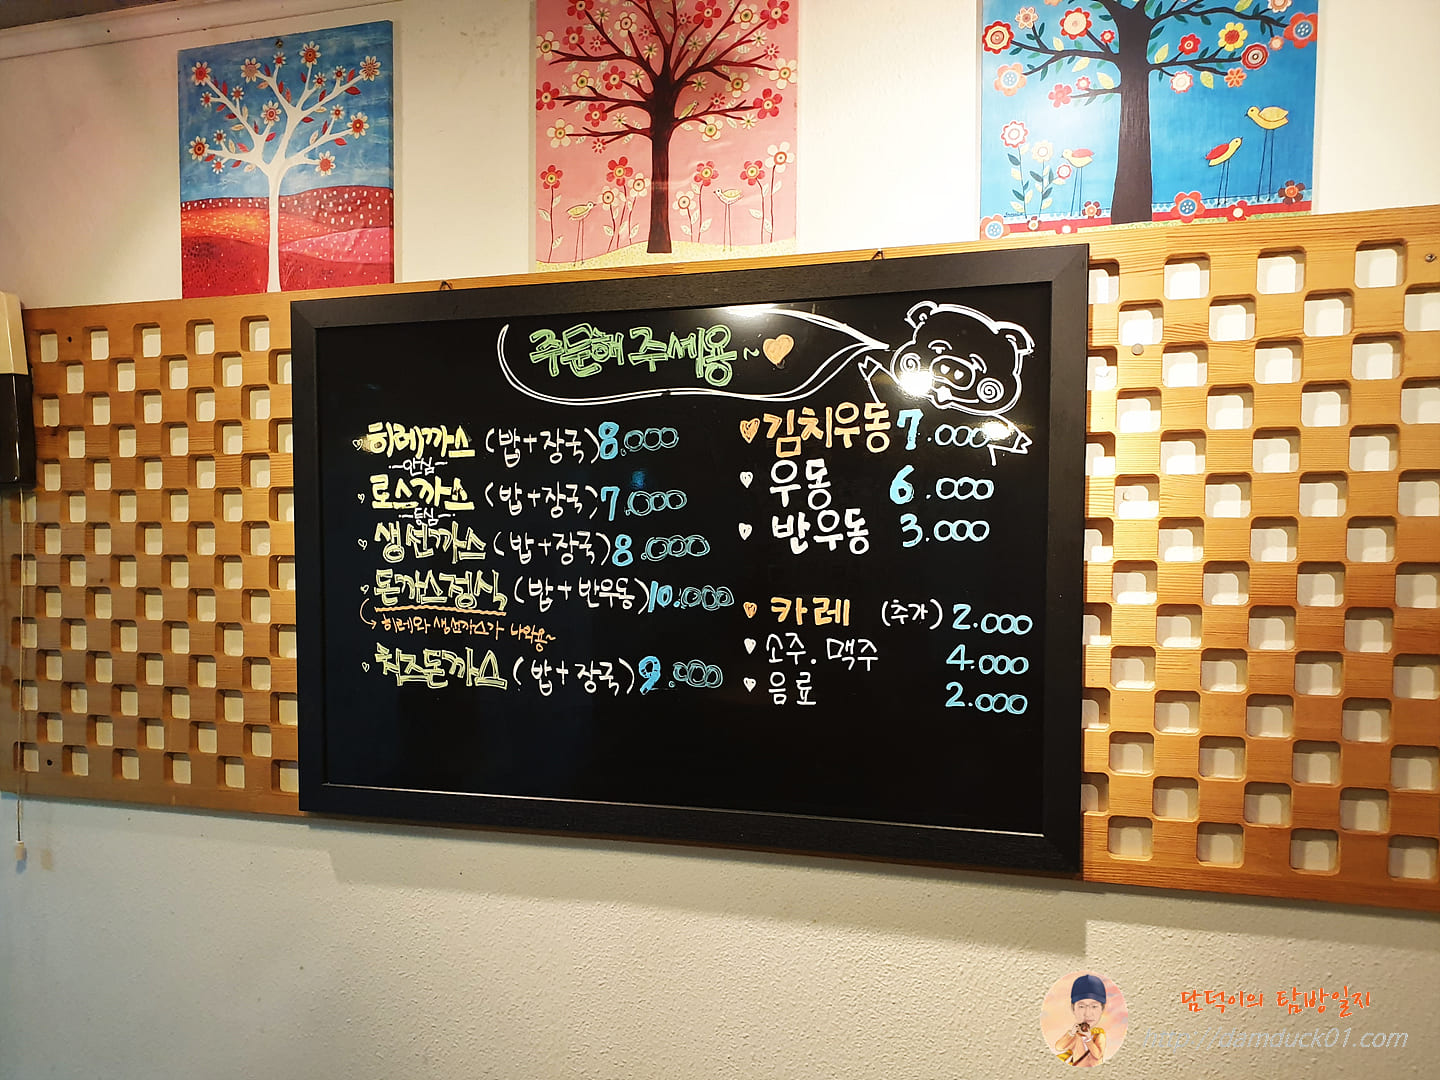 주문해 주세용~
히레까스 (밥+장국) 8.000
~안심~
로스까스 (밥+장국) 7.000
~등심~
생선까스 (밥+장국) 8.000
돈까스정식 (밥+반우동) 10.000
히레와 생선까스가 나와용~
치즈돈까스 (밥+장국) 9.000
김치우동 7.000
우동 6.000
반우동 3.000
카레 (추가) 2.000
소주. 맥주 4.000
음료 2.000
담덕이의 탐방일지
http://damduck01.com